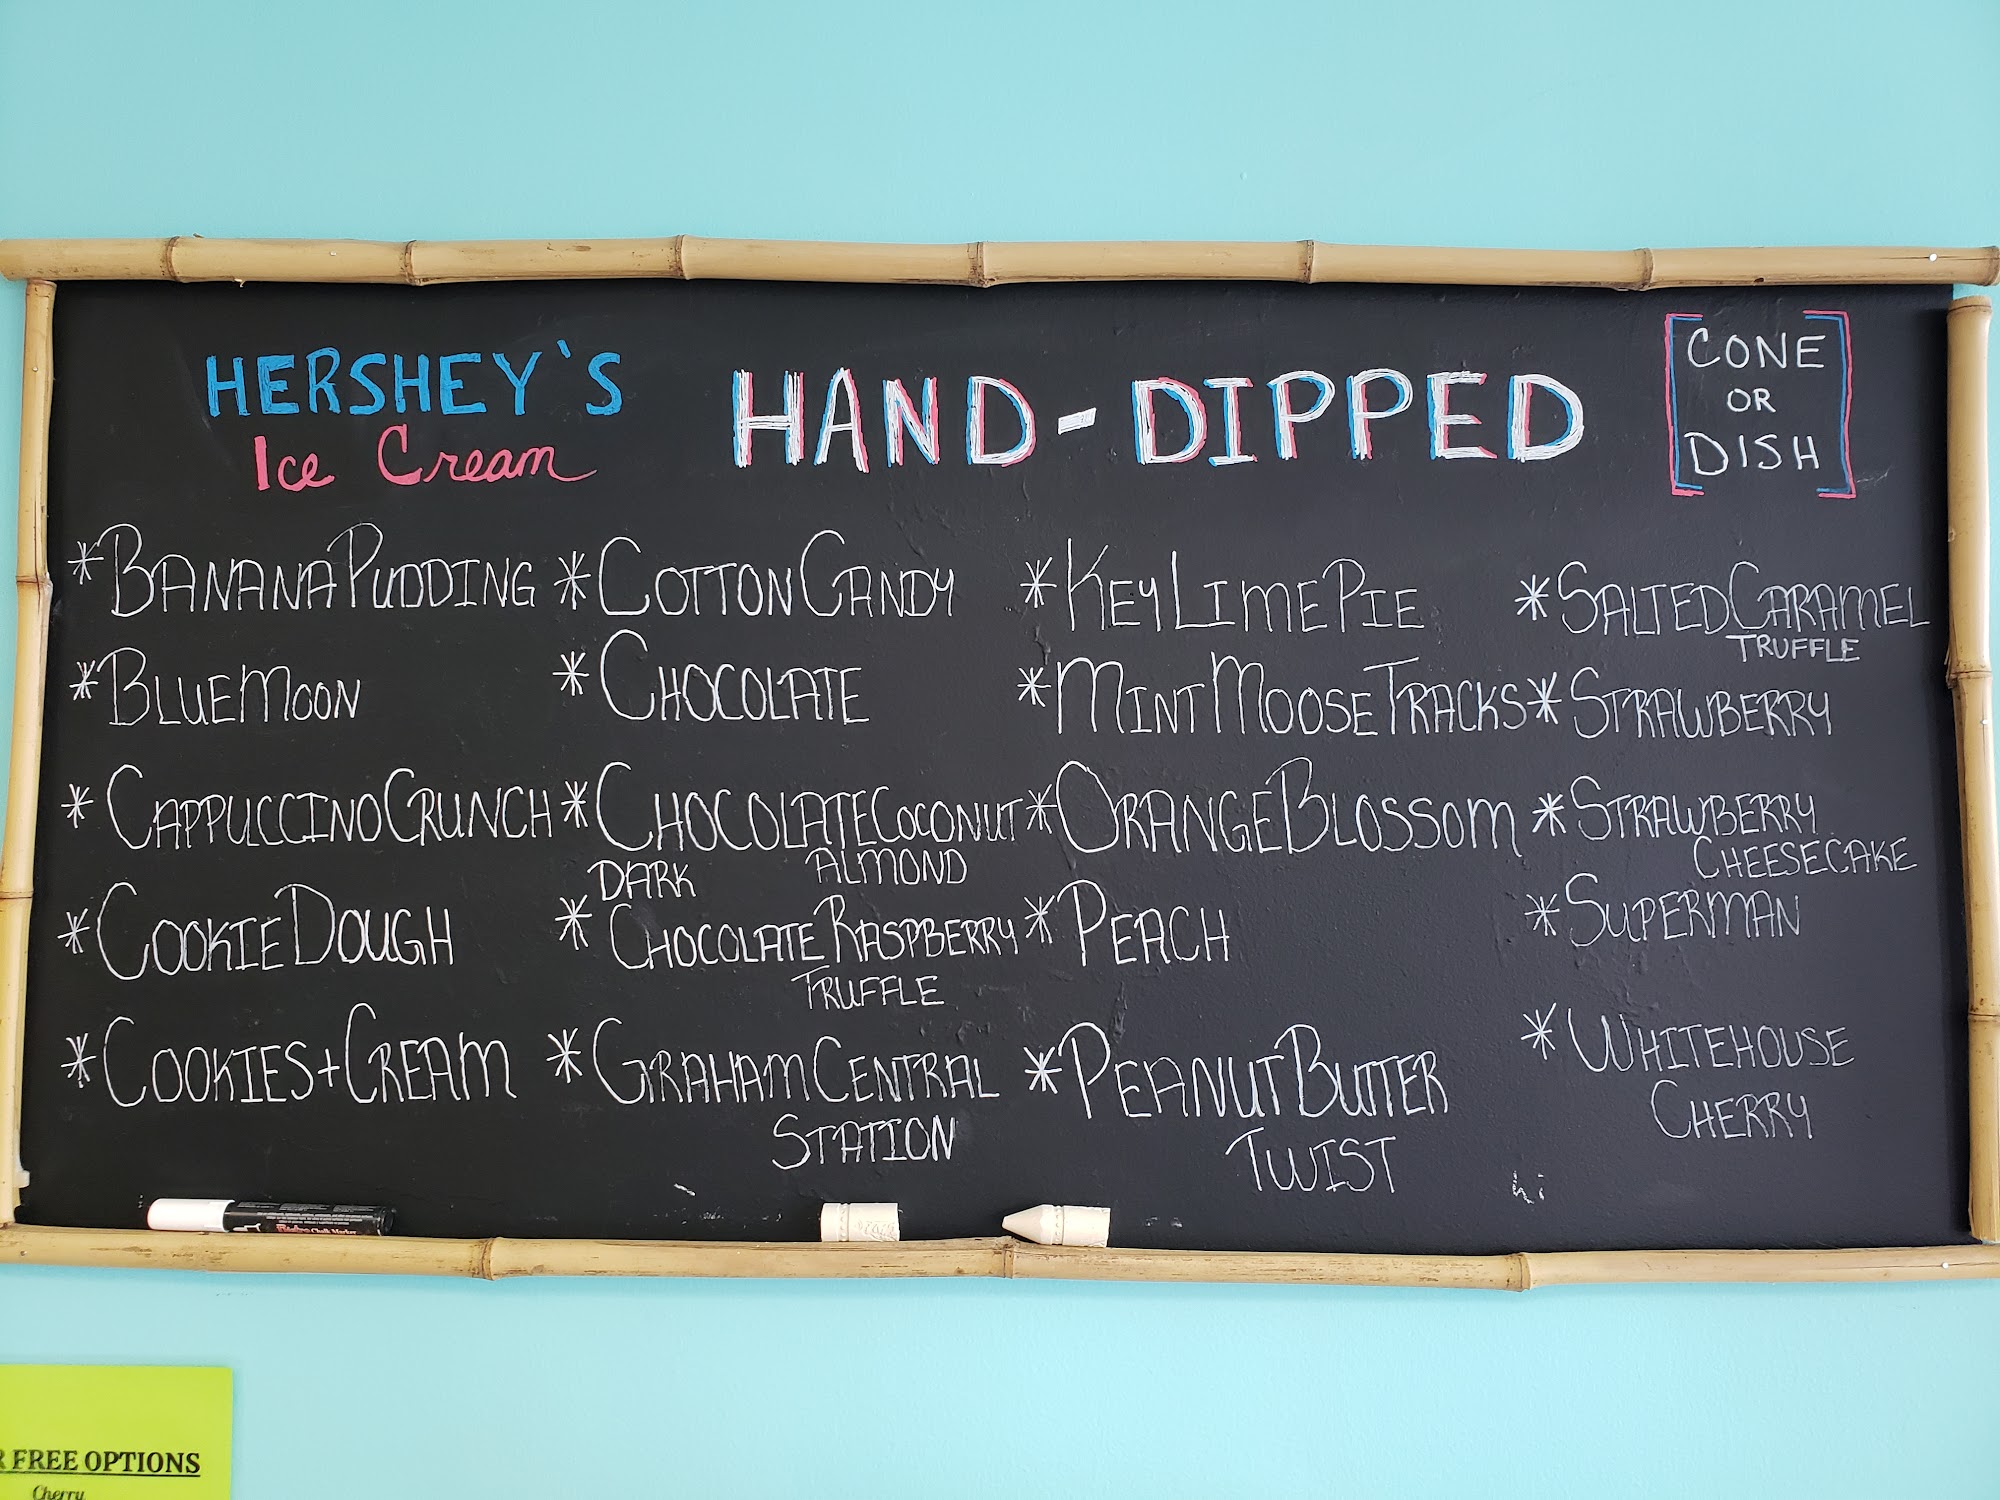 HERSHEY'S
Ice Cream
HAND-DIPPED
CONE
OR
DISH
*BANANA PUDDING
*BLUE MOON
*CAPPUCCINO CRUNCH
*COOKIE DOUGH
*COOKIES+CREAM
*COTTON CANDY
*CHOCOLATE
*CHOCOLATE COCONUT
ALMOND
DARK
*CHOCOLATE RASPBERRY
TRUFFLE
*GRAHAM CENTRAL
STATION
*KEY LIME PIE
*MINT MOOSE TRACKS
*ORANGE BLOSSOM
*PEACH
*PEANUT BUTTER
TWIST
*SALTED CARAMEL
TRUFFLE
*STRAWBERRY
*STRAWBERRY
CHEESECAKE
*SUPERMAN
*WHITEHOUSE
CHERRY
hi
R FREE OPTIONS
Cherry